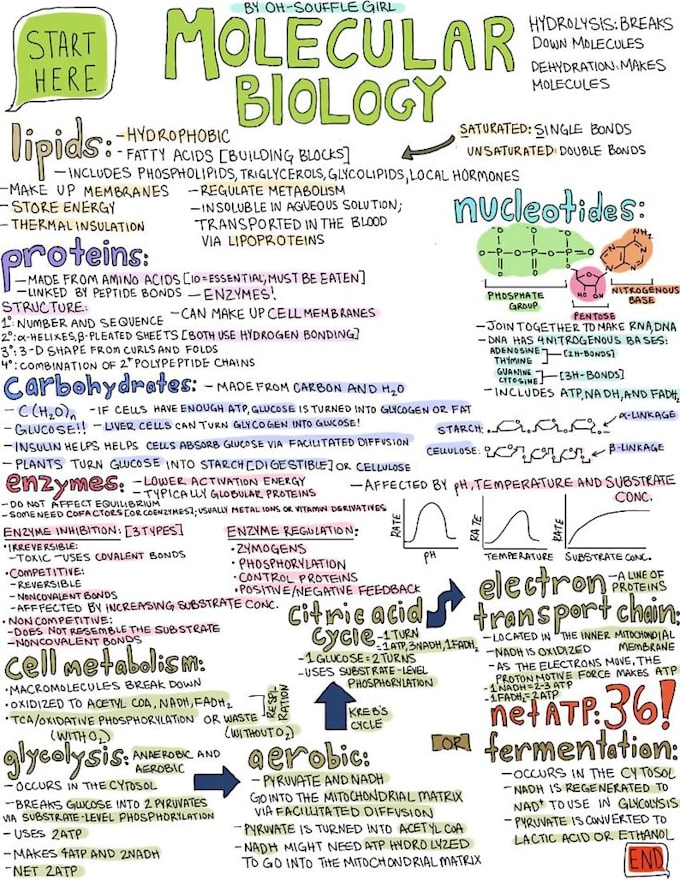 BY OH-SOUFFLE GIRL
START
HERE
MOLECULAR
BIOLOGY
HYDROLYSIS: BREAKS
DOWN MOLECULES
DEHYDRATION: MAKES
MOLECULES
lipids:
- HYDROPHOBIC
- FATTY ACIDS [BUILDING BLOCKS]
SATURATED: SINGLE BONDS
UNSATURATED: DOUBLE BONDS
- INCLUDES PHOSPHOLIPIDS, TRIGLYCEROLS, GLYCOLIPIDS, LOCAL HORMONES
- MAKE UP MEMBRANES
- STORE ENERGY
- THERMAL INSULATION
- REGULATE METABOLISM
- INSOLUBLE IN AQUEOUS SOLUTION;
TRANSPORTED IN THE BLOOD
VIA LIPOPROTEINS
proteins:
- MADE FROM AMINO ACIDS [10 = ESSENTIAL, MUST BE EATEN]
- LINKED BY PEPTIDE BONDS - ENZYMES!
STRUCTURE:
- CAN MAKE UP CELL MEMBRANES
1°: NUMBER AND SEQUENCE
2°: α-HELIXES, β-PLEATED SHEETS [BOTH USE HYDROGEN BONDING]
3°: 3-D SHAPE FROM CURLS AND FOLDS
4°: COMBINATION OF 2+ POLYPEPTIDE CHAINS
nucleotides:
NH₂
O-P-O-P-O-P-O
HO OH
PHOSPHATE
GROUP
PENTOSE
NITROGENOUS
BASE
- JOIN TOGETHER TO MAKE RNA, DNA
- DNA HAS 4 NITROGENOUS BASES:
ADENOSINE
THYMINE
[2 H-BONDS]
GUANINE
CYTOSINE
[3H-BONDS]
- INCLUDES ATP, NADH, AND FADH₂
carbohydrates:
- MADE FROM CARBON AND H₂O
- C(H₂O)n - IF CELLS HAVE ENOUGH ATP, GLUCOSE IS TURNED INTO GLYCOGEN OR FAT
- GLUCOSE!! - LIVER CELLS CAN TURN GLYCOGEN INTO GLUCOSE!
- INSULIN HELPS HELPS CELLS ABSORB GLUCOSE VIA FACILITATED DIFFUSION
- PLANTS TURN GLUCOSE INTO STARCH [DIGESTIBLE] OR CELLULOSE
STARCH:
α-LINKAGE
CELLULOSE:
β-LINKAGE
enzymes:
- LOWER ACTIVATION ENERGY
- TYPICALLY GLOBULAR PROTEINS
- DO NOT AFFECT EQUILIBRIUM
- SOME NEED COFACTORS [OR COENZYMES]; USUALLY METAL IONS OR VITAMIN DERIVATIVES
- AFFECTED BY pH, TEMPERATURE AND SUBSTRATE
CONC.
RATE
pH
RATE
TEMPERATURE
RATE
SUBSTRATE CONC.
ENZYME INHIBITION: [3 TYPES]
• IRREVERSIBLE:
- TOXIC - USES COVALENT BONDS
• COMPETITIVE:
- REVERSIBLE
- NONCOVALENT BONDS
- AFFFECTED BY INCREASING SUBSTRATE CONC.
• NON COMPETITIVE:
- DOES NOT RESEMBLE THE SUBSTRATE
- NONCOVALENT BONDS
ENZYME REGULATION:
• ZYMOGENS
• PHOSPHORYLATION
• CONTROL PROTEINS
• POSITIVE/NEGATIVE FEEDBACK
cell metabolism:
• MACROMOLECULES BREAK DOWN
• OXIDIZED TO ACETYL COA, NADH, FADH₂
• TCA/OXIDATIVE PHOSPHORYLATION OR WASTE
(WITH O₂)
(WITHOUT O₂)
RESPI-
RATION
citric acid
cycle
- 1 TURN
= 1ATP, 3NADH, 1FADH₂
- 1 GLUCOSE = 2 TURNS
- USES SUBSTRATE-LEVEL
PHOSPHORYLATION
KREB'S
CYCLE
electron
transport chain:
- A LINE OF
PROTEINS
- LOCATED IN THE INNER MITOCHONDIAL
MEMBRANE
- NADH IS OXIDIZED
- AS THE ELECTRONS MOVE, THE
PROTON MOTIVE FORCE MAKES ATP
- 1 NADH = 2-3 ATP
- 1 FADH₂ = 2ATP
net ATP: 36!
glycolysis:
ANAEROBIC AND
AEROBIC
- OCCURS IN THE CYTOSOL
- BREAKS GLUCOSE INTO 2 PYRUVATES
VIA SUBSTRATE-LEVEL PHOSPHORYLATION
- USES 2ATP
- MAKES 4ATP AND 2NADH
- NET 2ATP
aerobic:
- PYRUVATE AND NADH
GO INTO THE MITOCHONDRIAL MATRIX
VIA FACILITATED DIFFUSION
- PYRUVATE IS TURNED INTO ACETYL COA
- NADH MIGHT NEED ATP HYDROLYZED
TO GO INTO THE MITOCHONDRIAL MATRIX
OR
fermentation:
- OCCURS IN THE CYTOSOL
- NADH IS REGENERATED TO
NAD⁺ TO USE IN GLYCOLYSIS
- PYRUVATE IS CONVERTED TO
LACTIC ACID OR ETHANOL
END